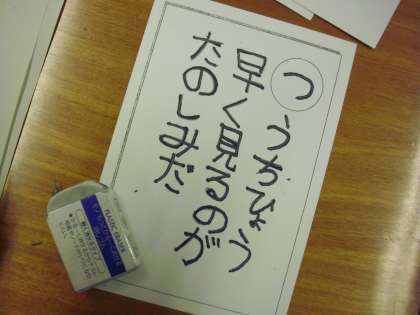 つ
うちひょう
早く見るのが
たのしみだ
PLASTIC ERASER